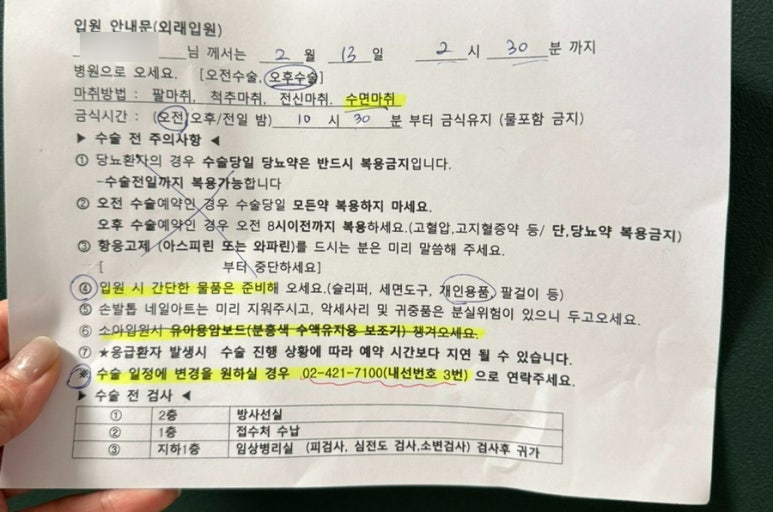 입원 안내문(외래입원)
님 께서는 2 월 13 일 2 시 30 분 까지
병원으로 오세요. [오전수술, 오후수술]
마취방법 : 팔마취, 척추마취, 전신마취. 수면마취
금식시간 : (오전/오후/전일 밤) 10 시 30 분 부터 금식유지 (물포함 금지)
▶ 수술 전 주의사항 ◀
① 당뇨환자의 경우 수술당일 당뇨약은 반드시 복용금지입니다.
-수술전일까지 복용가능합니다
② 오전 수술예약인 경우 수술당일 모든약 복용하지 마세요.
오후 수술예약인 경우 오전 8시이전까지 복용하세요.(고혈압,고지혈증약 등/ 단,당뇨약 복용금지)
③ 항응고제 (아스피린 또는 와파린)를 드시는 분은 미리 말씀해 주세요.
[ 부터 중단하세요]
④ 입원 시 간단한 물품은 준비해 오세요.(슬리퍼, 세면도구, 개인용품, 팔걸이 등)
⑤ 손발톱 네일아트는 미리 지워주시고, 악세사리 및 귀중품은 분실위험이 있으니 두고오세요.
⑥ 소아입원시 유아용암보드(분홍색 수액유지용 보조기) 챙겨오세요.
⑦ ★응급환자 발생시 수술 진행 상황에 따라 예약 시간보다 지연 될 수 있습니다.
※ 수술 일정에 변경을 원하실 경우 02-421-7100(내선번호 3번) 으로 연락주세요.
▶ 수술 전 검사 ◀
① 2층 방사선실
② 1층 접수처 수납
③ 지하1층 임상병리실 (피검사, 심전도 검사,소변검사) 검사후 귀가